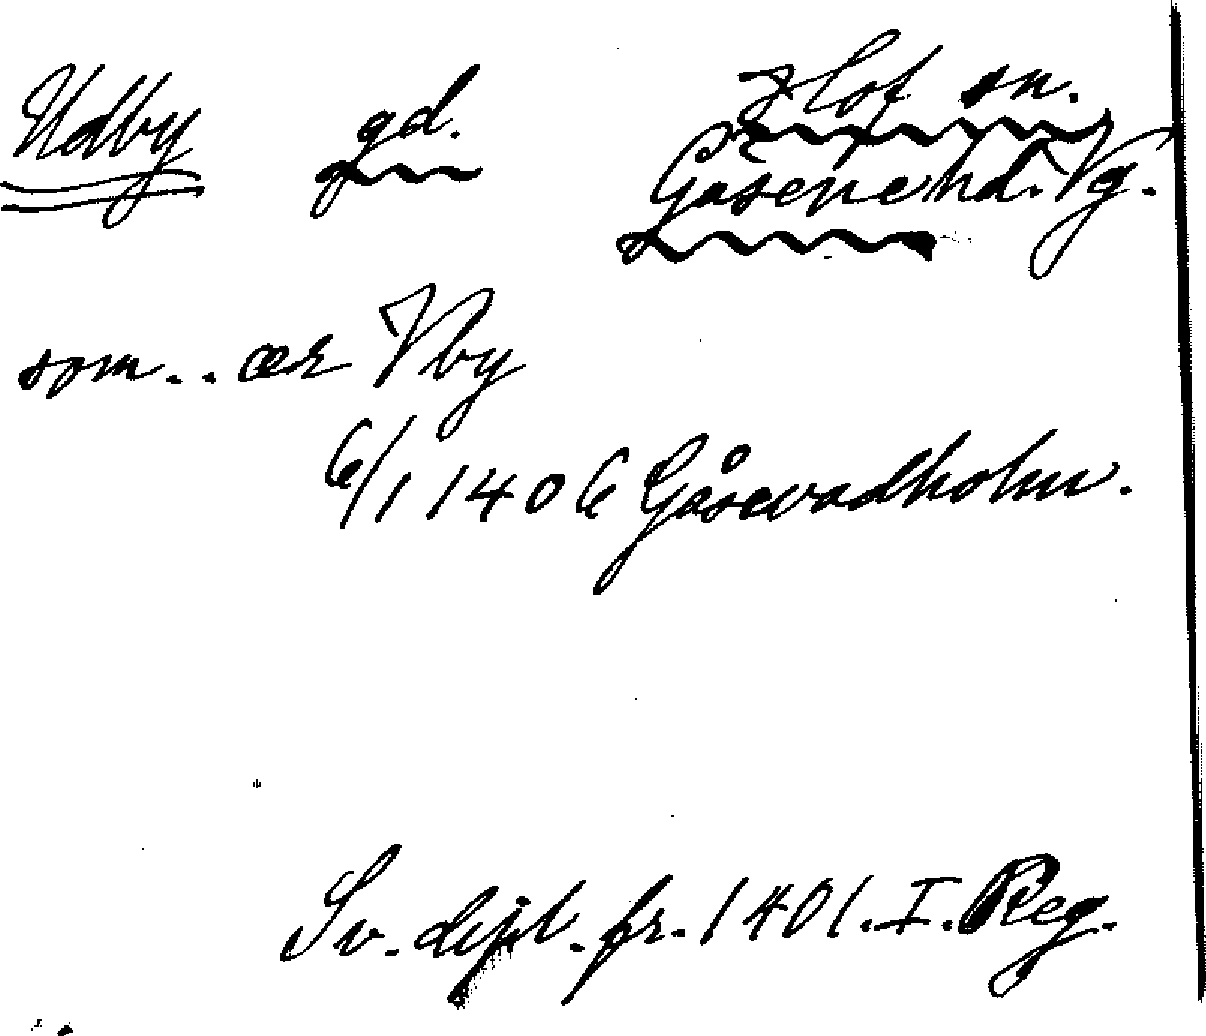 Udby gd. Hof sn.
Gåsene hd. Vg.
som.. ær Vby
6/1 1406 Gåsevadholm.
Sv. dipl. fr. 1401. I. Reg.